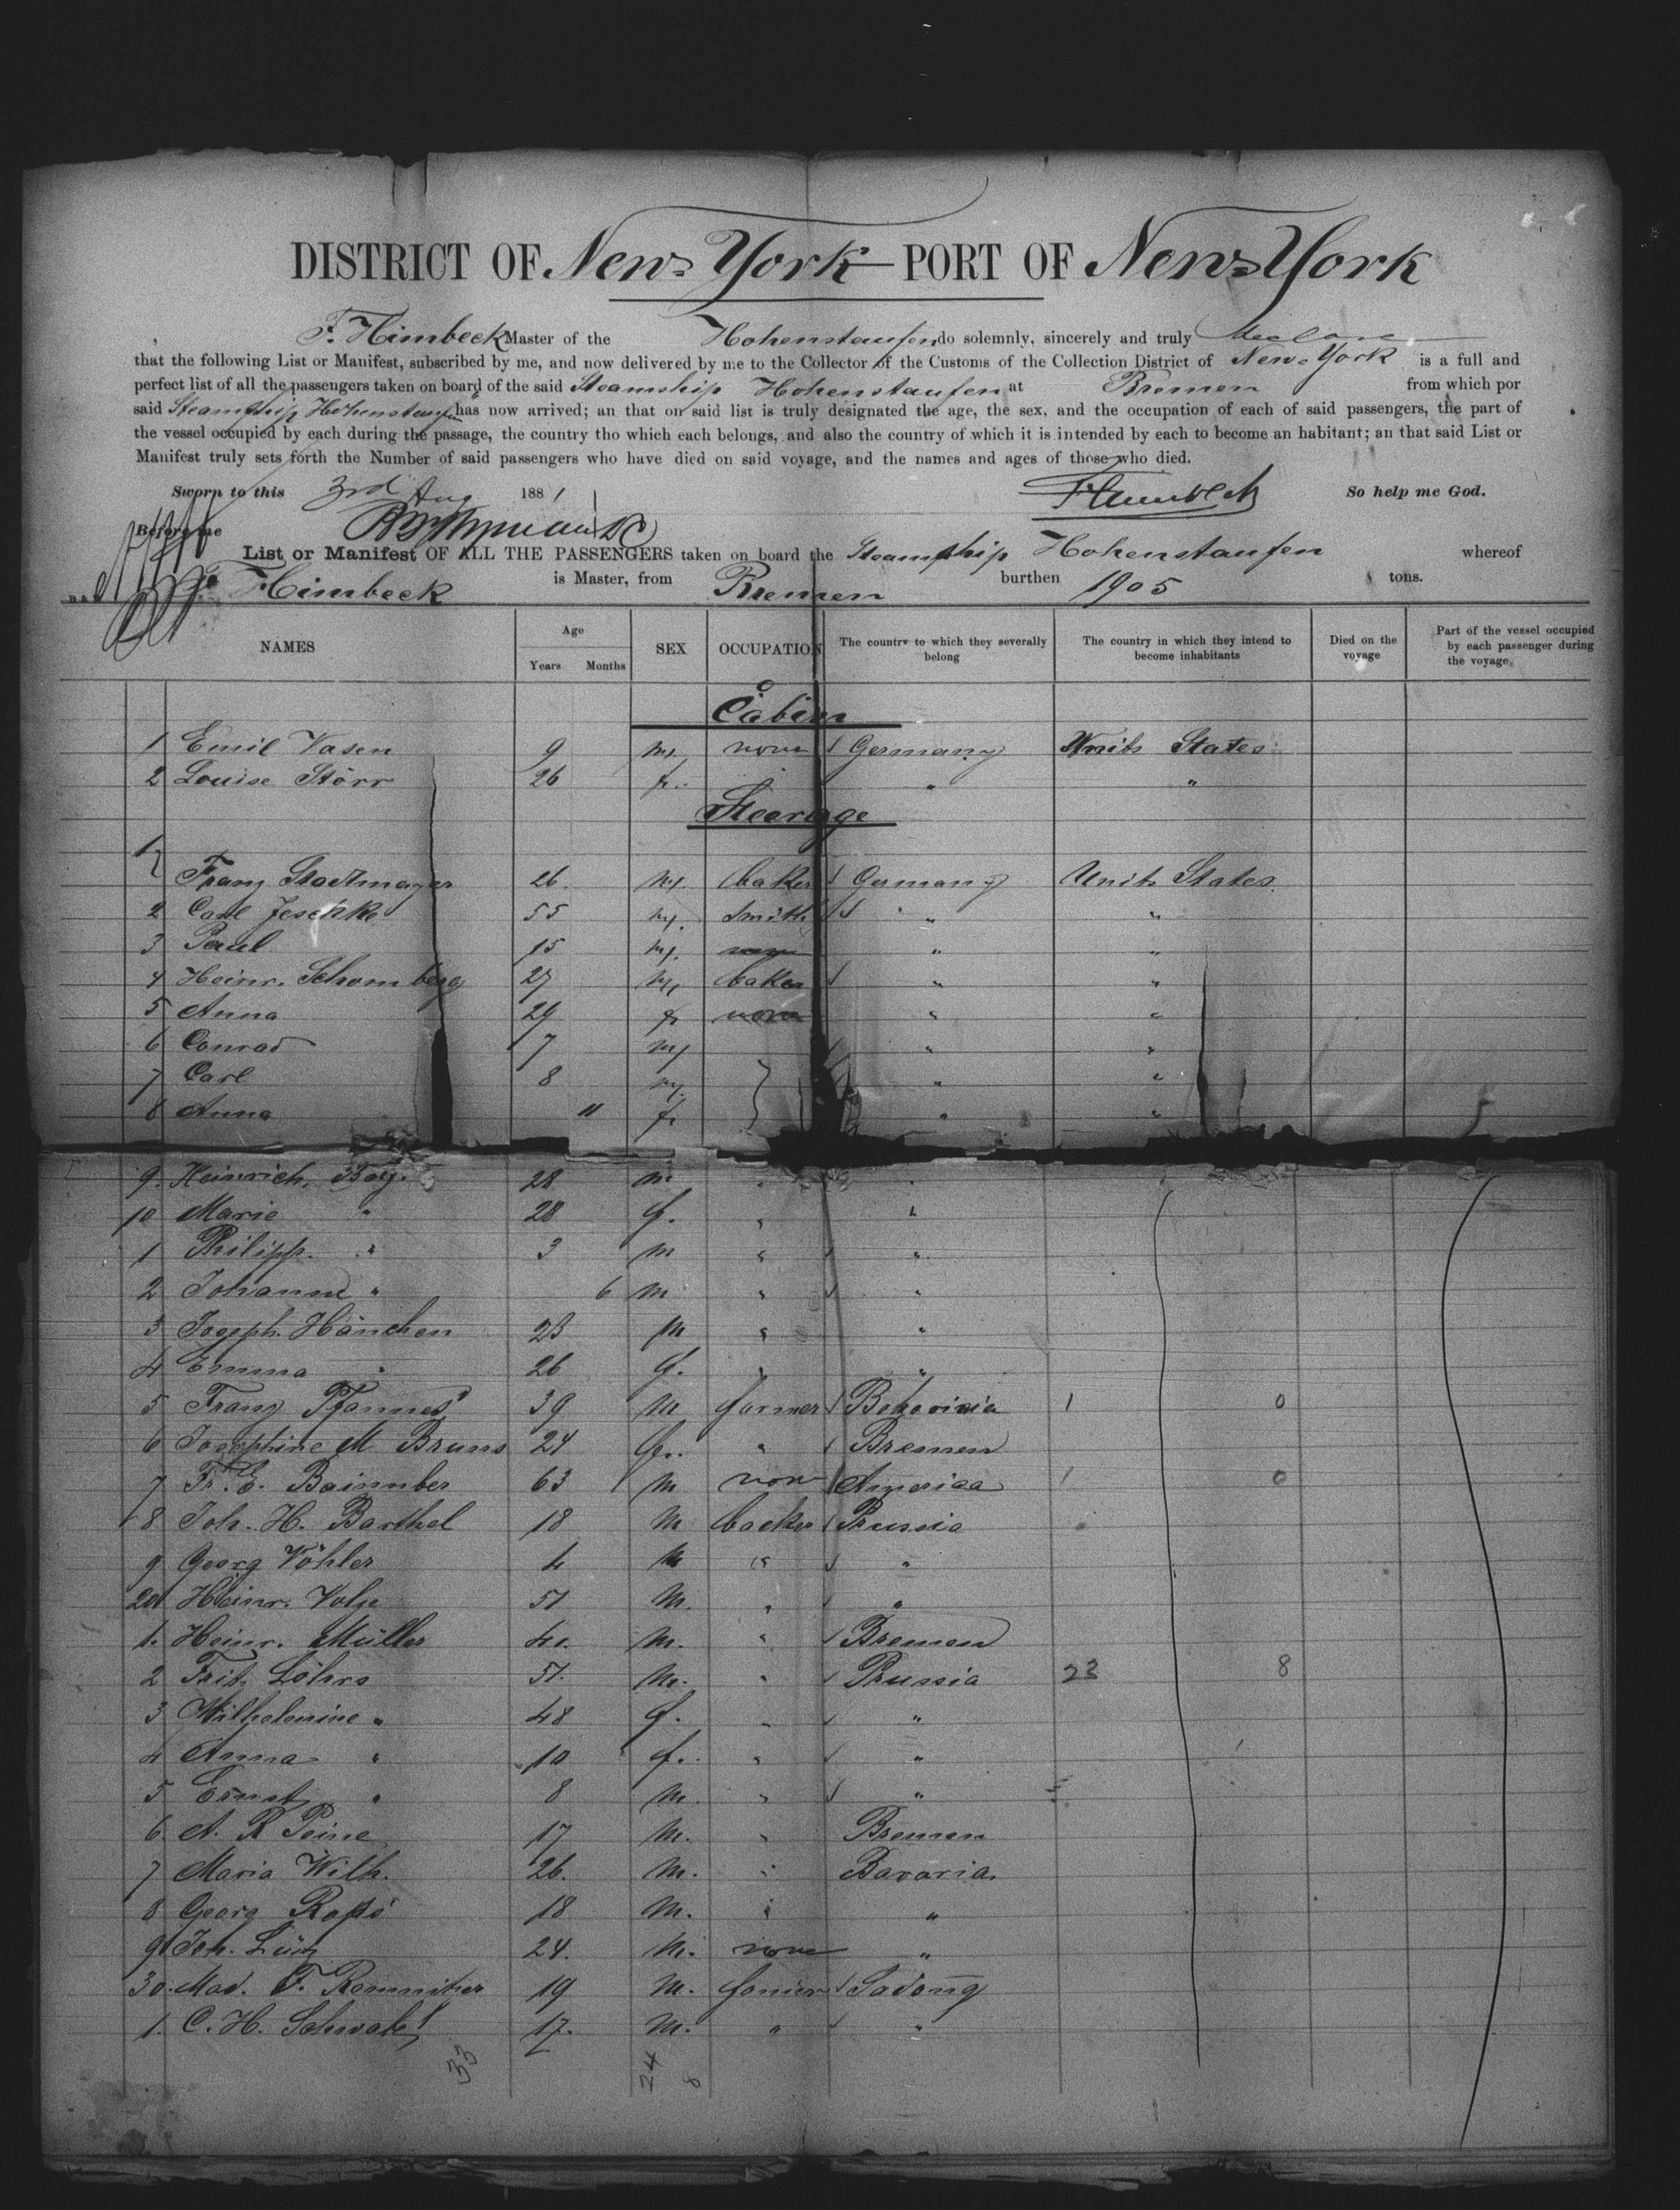 DISTRICT OF New York PORT OF New York
F. Himbeck Master of the Hohenstaufen do solemnly, sincerely and truly declare
that the following List or Manifest, subscribed by me, and now delivered by me to the Collector of the Customs of the Collection District of New York is a full and
perfect list of all the passengers taken on board of the said Steamship Hohenstaufen at Bremen from which por
said Steamship Hohenstaufen has now arrived; an that on said list is truly designated the age, the sex, and the occupation of each of said passengers, the part of
the vessel occupied by each during the passage, the country tho which each belongs, and also the country of which it is intended by each to become an habitant; an that said List or
Manifest truly sets forth the Number of said passengers who have died on said voyage, and the names and ages of those who died.
Sworn to this 3rd Aug 1881 So help me God.
Before me
List or Manifest OF ALL THE PASSENGERS taken on board the Steamship Hohenstaufen whereof
F. Himbeck is Master, from Bremen burthen 1905 tons.
NAMES Age Years Months SEX OCCUPATION The country to which they severally belong The country in which they intend to become inhabitants Died on the voyage Part of the vessel occupied by each passenger during the voyage
Cabin
1 Emil Vasen 9 m. none Germany Unit. States
2 Louise Störr 26 f. " "
Steerage
1 Franz Stadtmayer 26 m. baker Germany Unit. States
2 Carl Jeschke 55 m. Smith " "
3 Paul 15 m. " "
4 Heinr. Schomberg 27 m. baker " "
5 Anna 29 f. none " "
6 Conrad 7 m. " "
7 Carl 8 m. " "
8 Anna 11 f. " "
9. Heinrich Bay. 28 m " "
10 Marie " 28 f. " "
1 Philipp. " 3 m " "
2 Johanne " 6 m " "
3 Joseph Hänchen 23 m " "
4 Emma " 26 f. " "
5 Franz Pfannes 39 m farmer 1 0
6 Josephine M Bruns 24 f. " Bremen
7 Fr. E. 63 m none America 1 0
8 Joh. H. Barthel 18 m backer Prussia
9 Georg Vöhler 4 m " "
20 Heinr. Volje 51 m. " "
1. Heinr. Müller 40. m. " Bremen
2 Fritz Löhrs 51. m. " Prussia 23 8
3 Wilhelmine " 48 f. " "
4 Anna " 10 f. " "
5 Ernst " 8 m. " "
6. A. R Peine 17 m. " Bremen
7 Maria Wilh. 26. m. " Bavaria
8 Georg 18 m. " "
9 Joh. 24. m. none "
30. Mad. F. 19 m.
1. C. H. Schwabe 17. m. " "
33 24 8